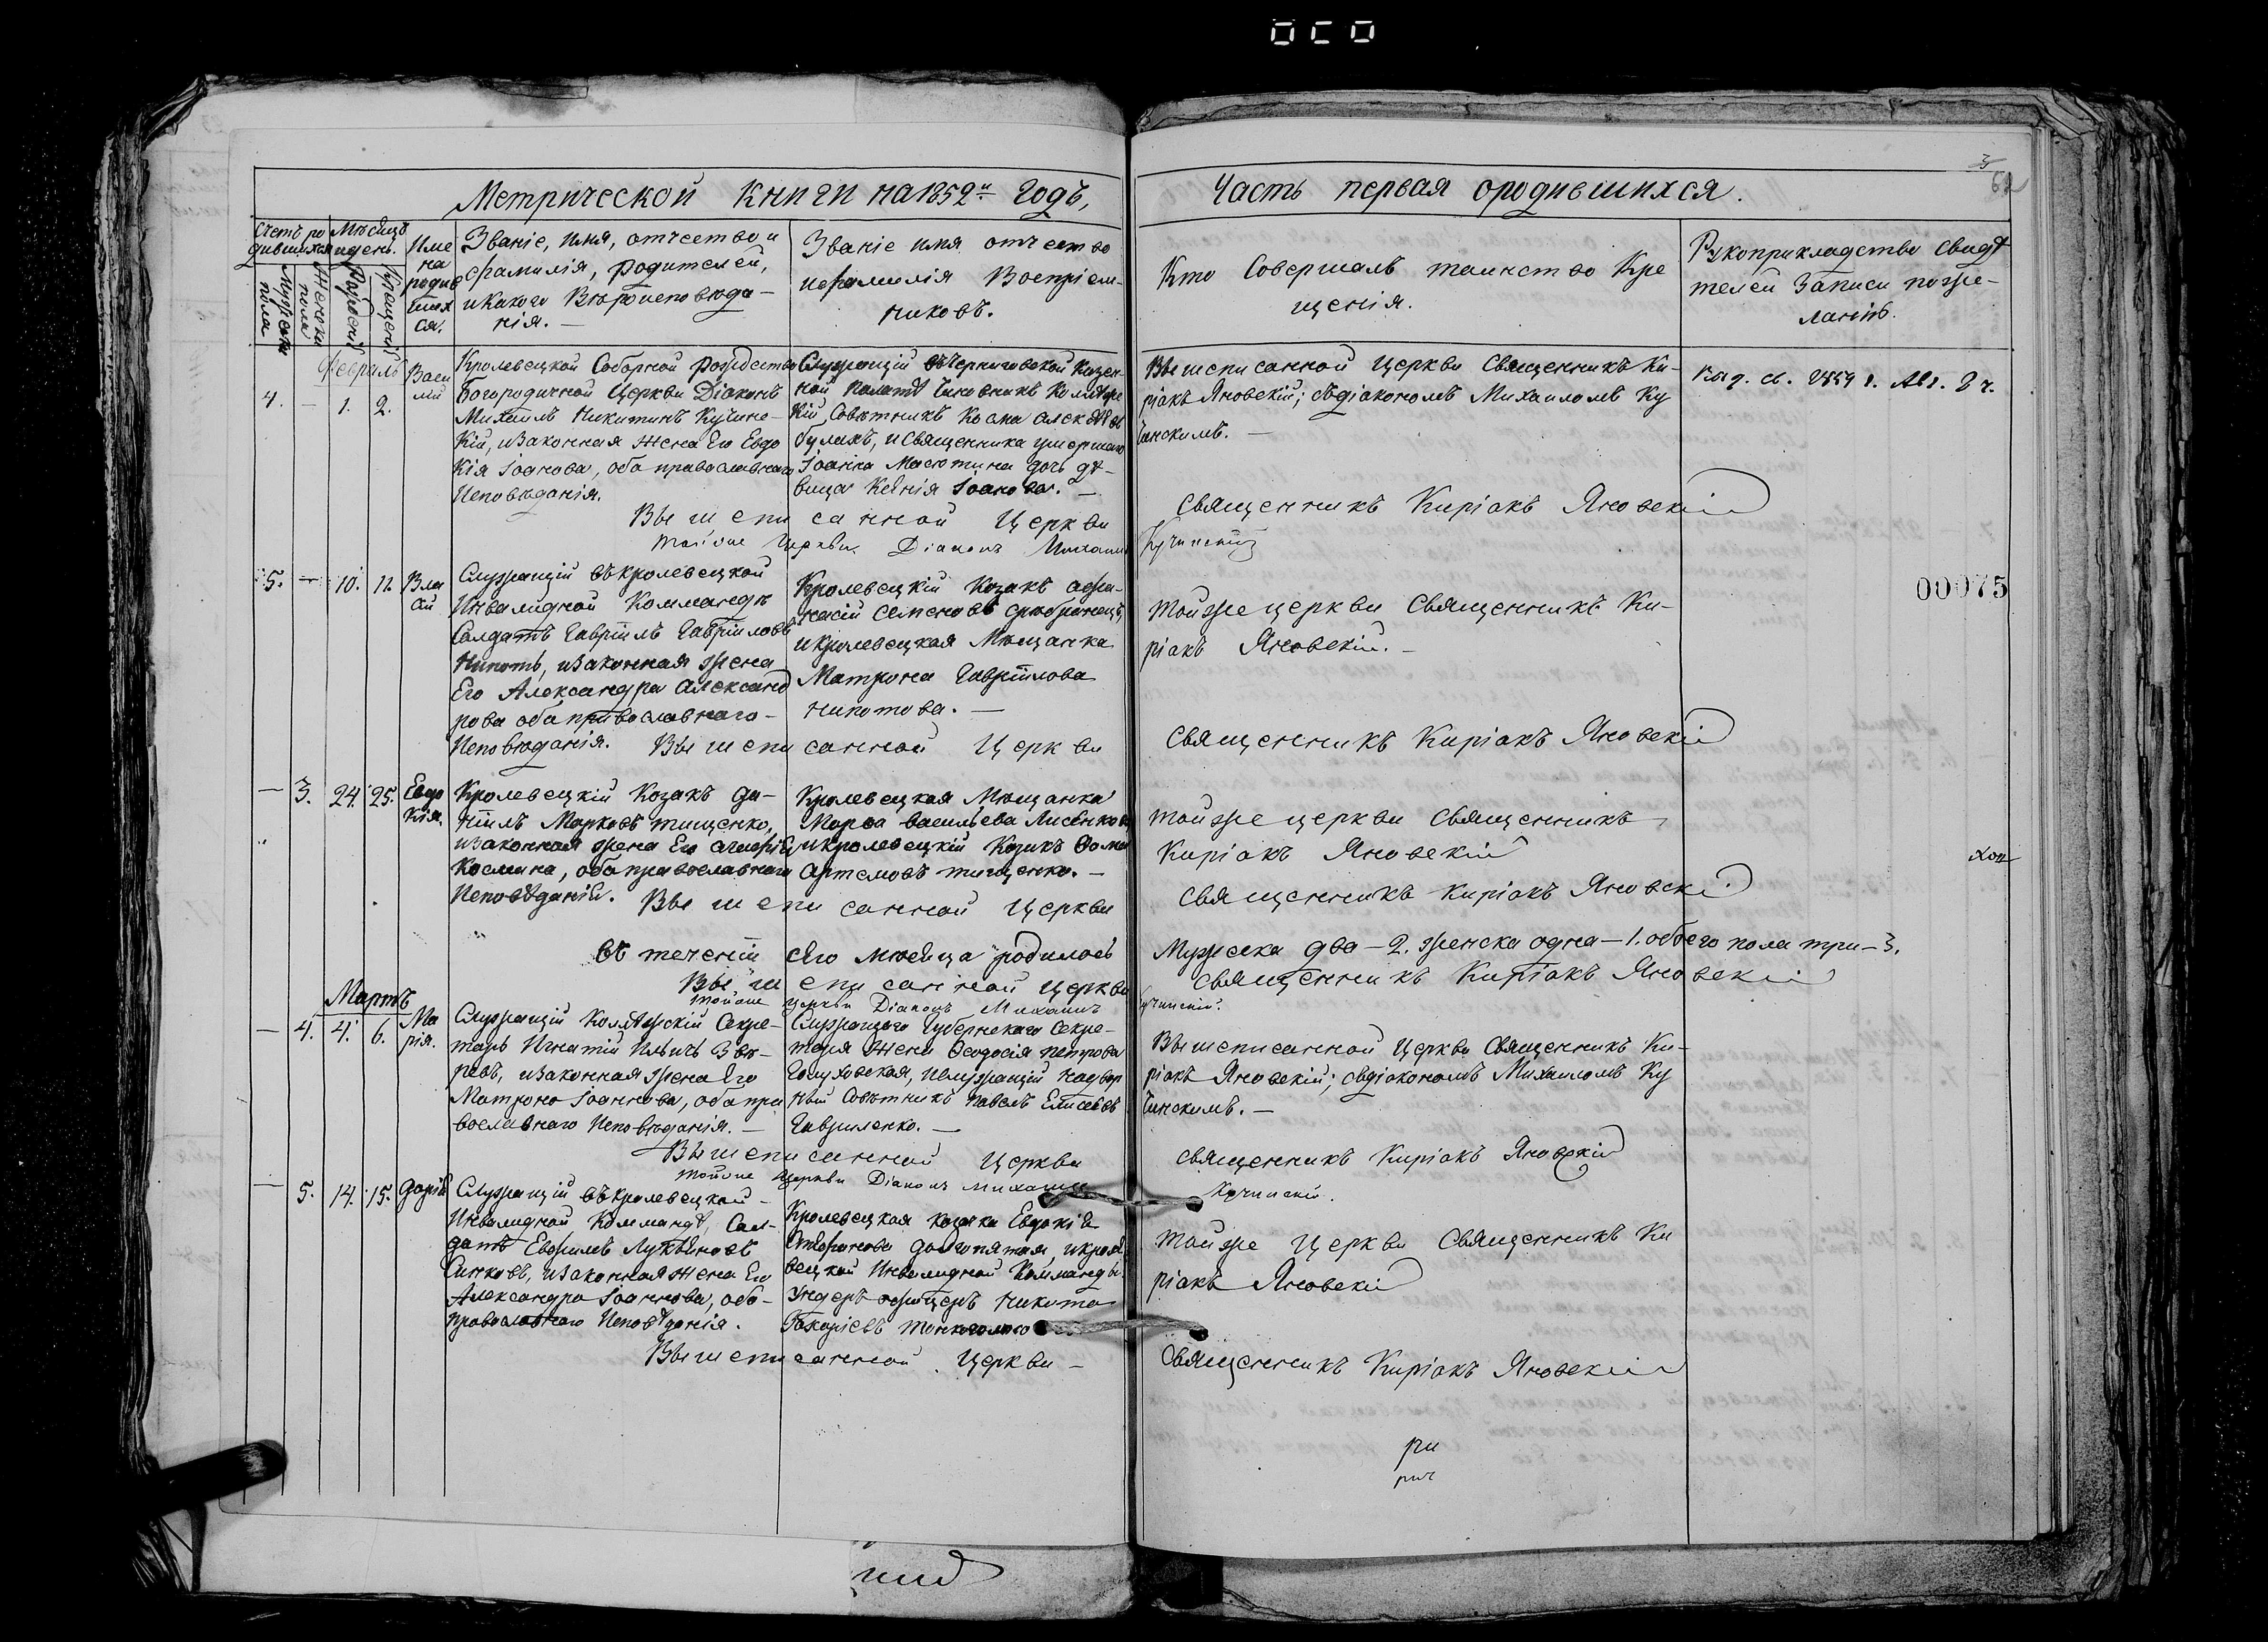 Метрической книги на 1852й годъ,
Часть первая о родившихся.
Счетъ ро
дившихся
Мѣсяцъ
и день.
Мужеска
пола
Женска
пола
Рожденія
Крещенія
Име
на
родив
шихся.
Званіе, имя, отчество и
фамилія, родителей,
и какого вѣроисповѣда-
нія. —
Званіе имя отчество
и фамилія воспріем-
никовъ.
Кто совершалъ таинство Кре
щенія.
Рукоприкладство свидѣ
телей записи по же-
ланію.
Февраль
4. — 1. 2.
Васи
лій
Кролевецкой Соборной Рождество
Богородичной Церкви Діаконъ
Михаилъ Никитинъ Кучинс-
кій, и законная жена его Евдо
кія Іоанова, оба православнаго
исповѣданія.
Служащій въ Черниговской Казен-
ной палатѣ Чиновникъ Коллежс
кій Совѣтникъ Косма Алексѣевъ
Булахъ, и священника умершаго
Іоанна Масютина дочь дѣ-
вица Ксенія Іоанова. —
Вышеписанной Церкви священникъ Ки-
ріакъ Яновскій; съ діакономъ Михаиломъ Ку
чинскимъ. —
Вышеписанной Церкви священникъ Киріакъ Яновскій
Тойже Церкви Діаконъ Михаилъ Кучинскій
5. — 10. 11.
Вла
сій
Служащій въ Кролевецкой
Инвалидной Коммандѣ
Солдатъ Гавріилъ Гавріиловъ
Нипотъ, и законная жена
Его Александра Александ
рова оба православнаго-
исповѣданія.
Кролевецкій Козакъ Афа-
насій Семеновъ Сребранецъ,
и Кролевецкая Мѣщанка
Матрона Гавріилова
Нипотова. —
Тойже церкви священникъ Ки-
ріакъ Яновскій. —
00075
Вышеписанной Церкви священникъ Киріакъ Яновскій
— 3. 24. 25.
Евдо
кія.
Кролевецкій Козакъ Да-
ніилъ Марковъ Тищенко,
и законная жена Его
Космина, оба православнаго
исповѣданій.
Кролевецкая Мѣщанка
Марфа Васильева Лисенкова
и Кролевецкій Козакъ Фома
Артемовъ Тищенко. —
Тойже церкви священникъ
Киріакъ Яновскій
Вышеписанной Церкви священникъ Киріакъ Яновскій
Въ теченіи сего мѣсяца родилось Мужеска два — 2. женска одна — 1. обоего пола три — 3.
Вышеписанной Церкви священникъ Киріакъ Яновскій
Тойже Церкви Діаконъ Михаилъ Кучинскій.
Мартъ
— 4. 4. 6.
Ма
рія.
Служащій Коллежскій Секре-
тарь Игнатій Ильичъ Звѣ-
ревъ, и законная жена Его
Матрона Іоаннова, оба пра
вославнаго исповѣданія. —
Служащаго Губернскаго Секре-
таря жена Феодосія Петрова
Голуховская, и служащій Надвор
ный Совѣтникъ Павелъ Елисеевъ
Гавриленко. —
Вышеписанной Церкви священникъ Ки-
ріакъ Яновскій; съ діакономъ Михаиломъ Ку
чинскимъ. —
Вышеписанной Церкви священникъ Киріакъ Яновскій
Тойже Церкви Діаконъ Михаилъ Кучинскій.
— 5. 14. 15.
Дарія
Служащій въ Кролевецкой -
Инвалидной Коммандѣ, Сол-
датъ Евфимъ Лукьяновъ
Синковъ, и законная жена Его
Александра Іоаннова, оба-
православнаго исповѣданія.
Кролевецкая Козачка Евдокія
Долгопятая, и Кроле
вецкой Инвалидной Комманды
Ундеръ офицеръ Никита
Тойже Церкви священникъ Ки
ріакъ Яновскій
Вышеписанной Церкви — священникъ Киріакъ Яновскій